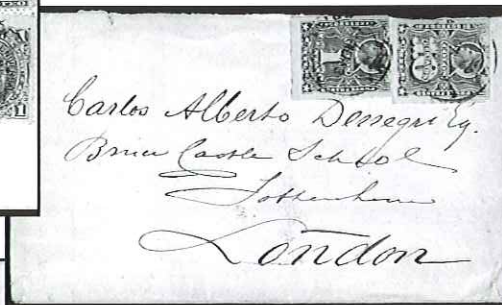 Carlos Alberto Dessegri Esq.
Bruce Castle School
Tottenham
London
1
1